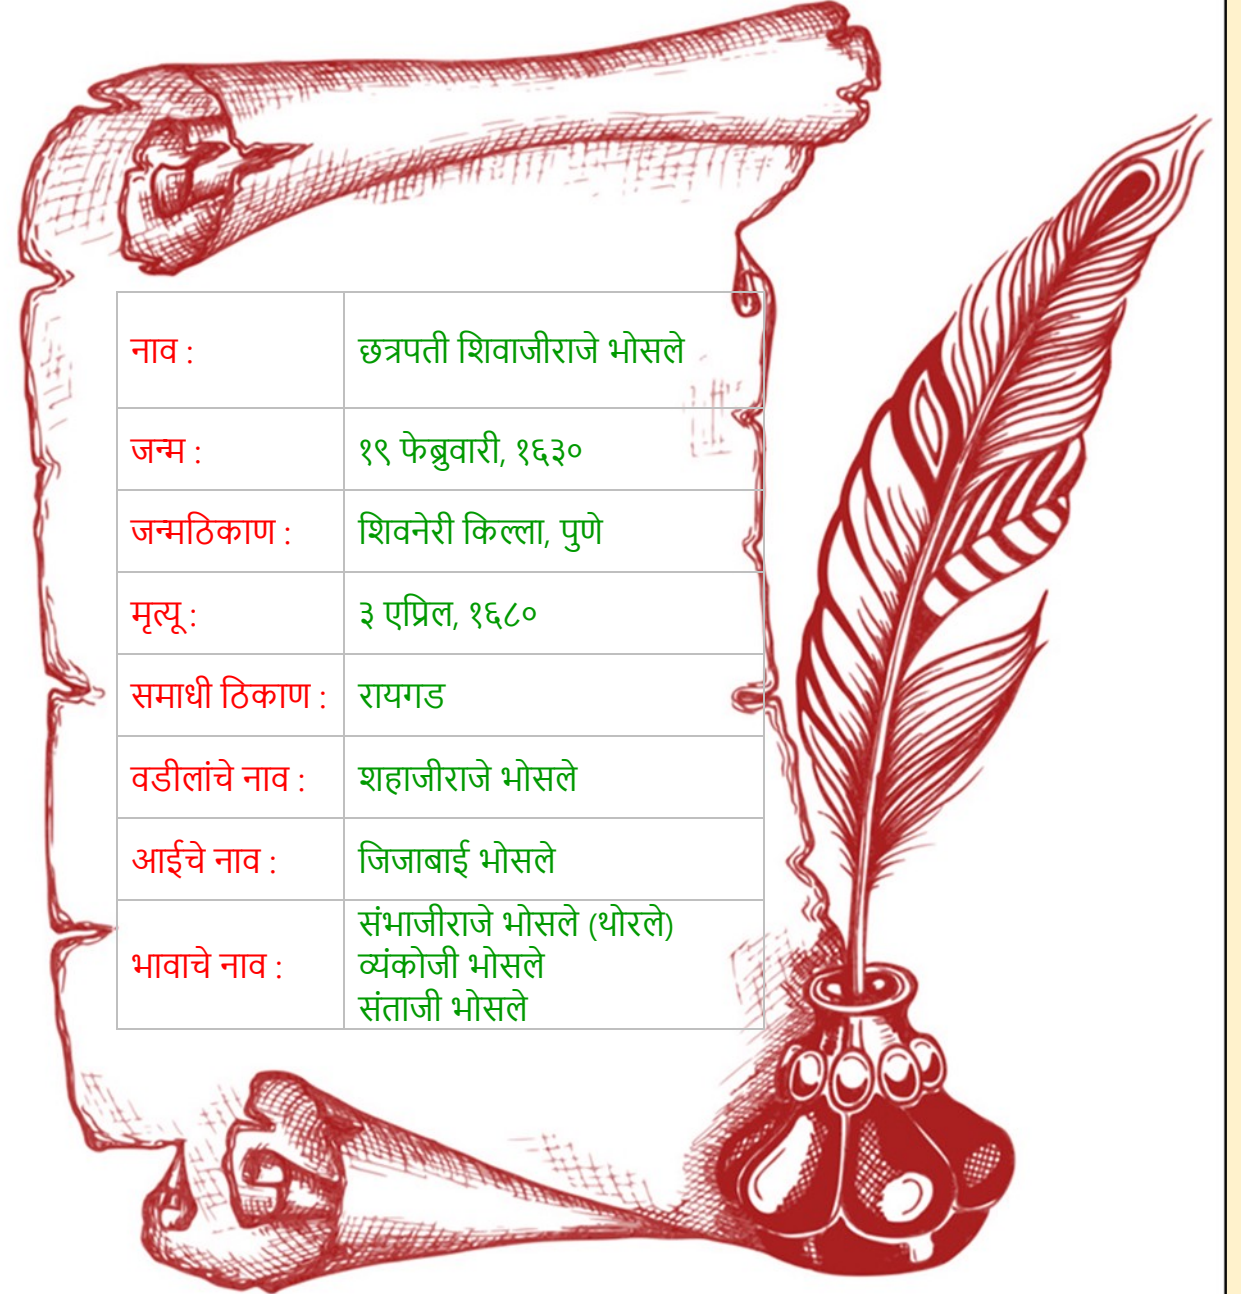 नाव : छत्रपती शिवाजीराजे भोसले
जन्म : १९ फेब्रुवारी, १६३०
जन्मठिकाण : शिवनेरी किल्ला, पुणे
मृत्यू : ३ एप्रिल, १६८०
समाधी ठिकाण : रायगड
वडीलांचे नाव : शहाजीराजे भोसले
आईचे नाव : जिजाबाई भोसले
भावाचे नाव : संभाजीराजे भोसले (थोरले)
व्यंकोजी भोसले
संताजी भोसले